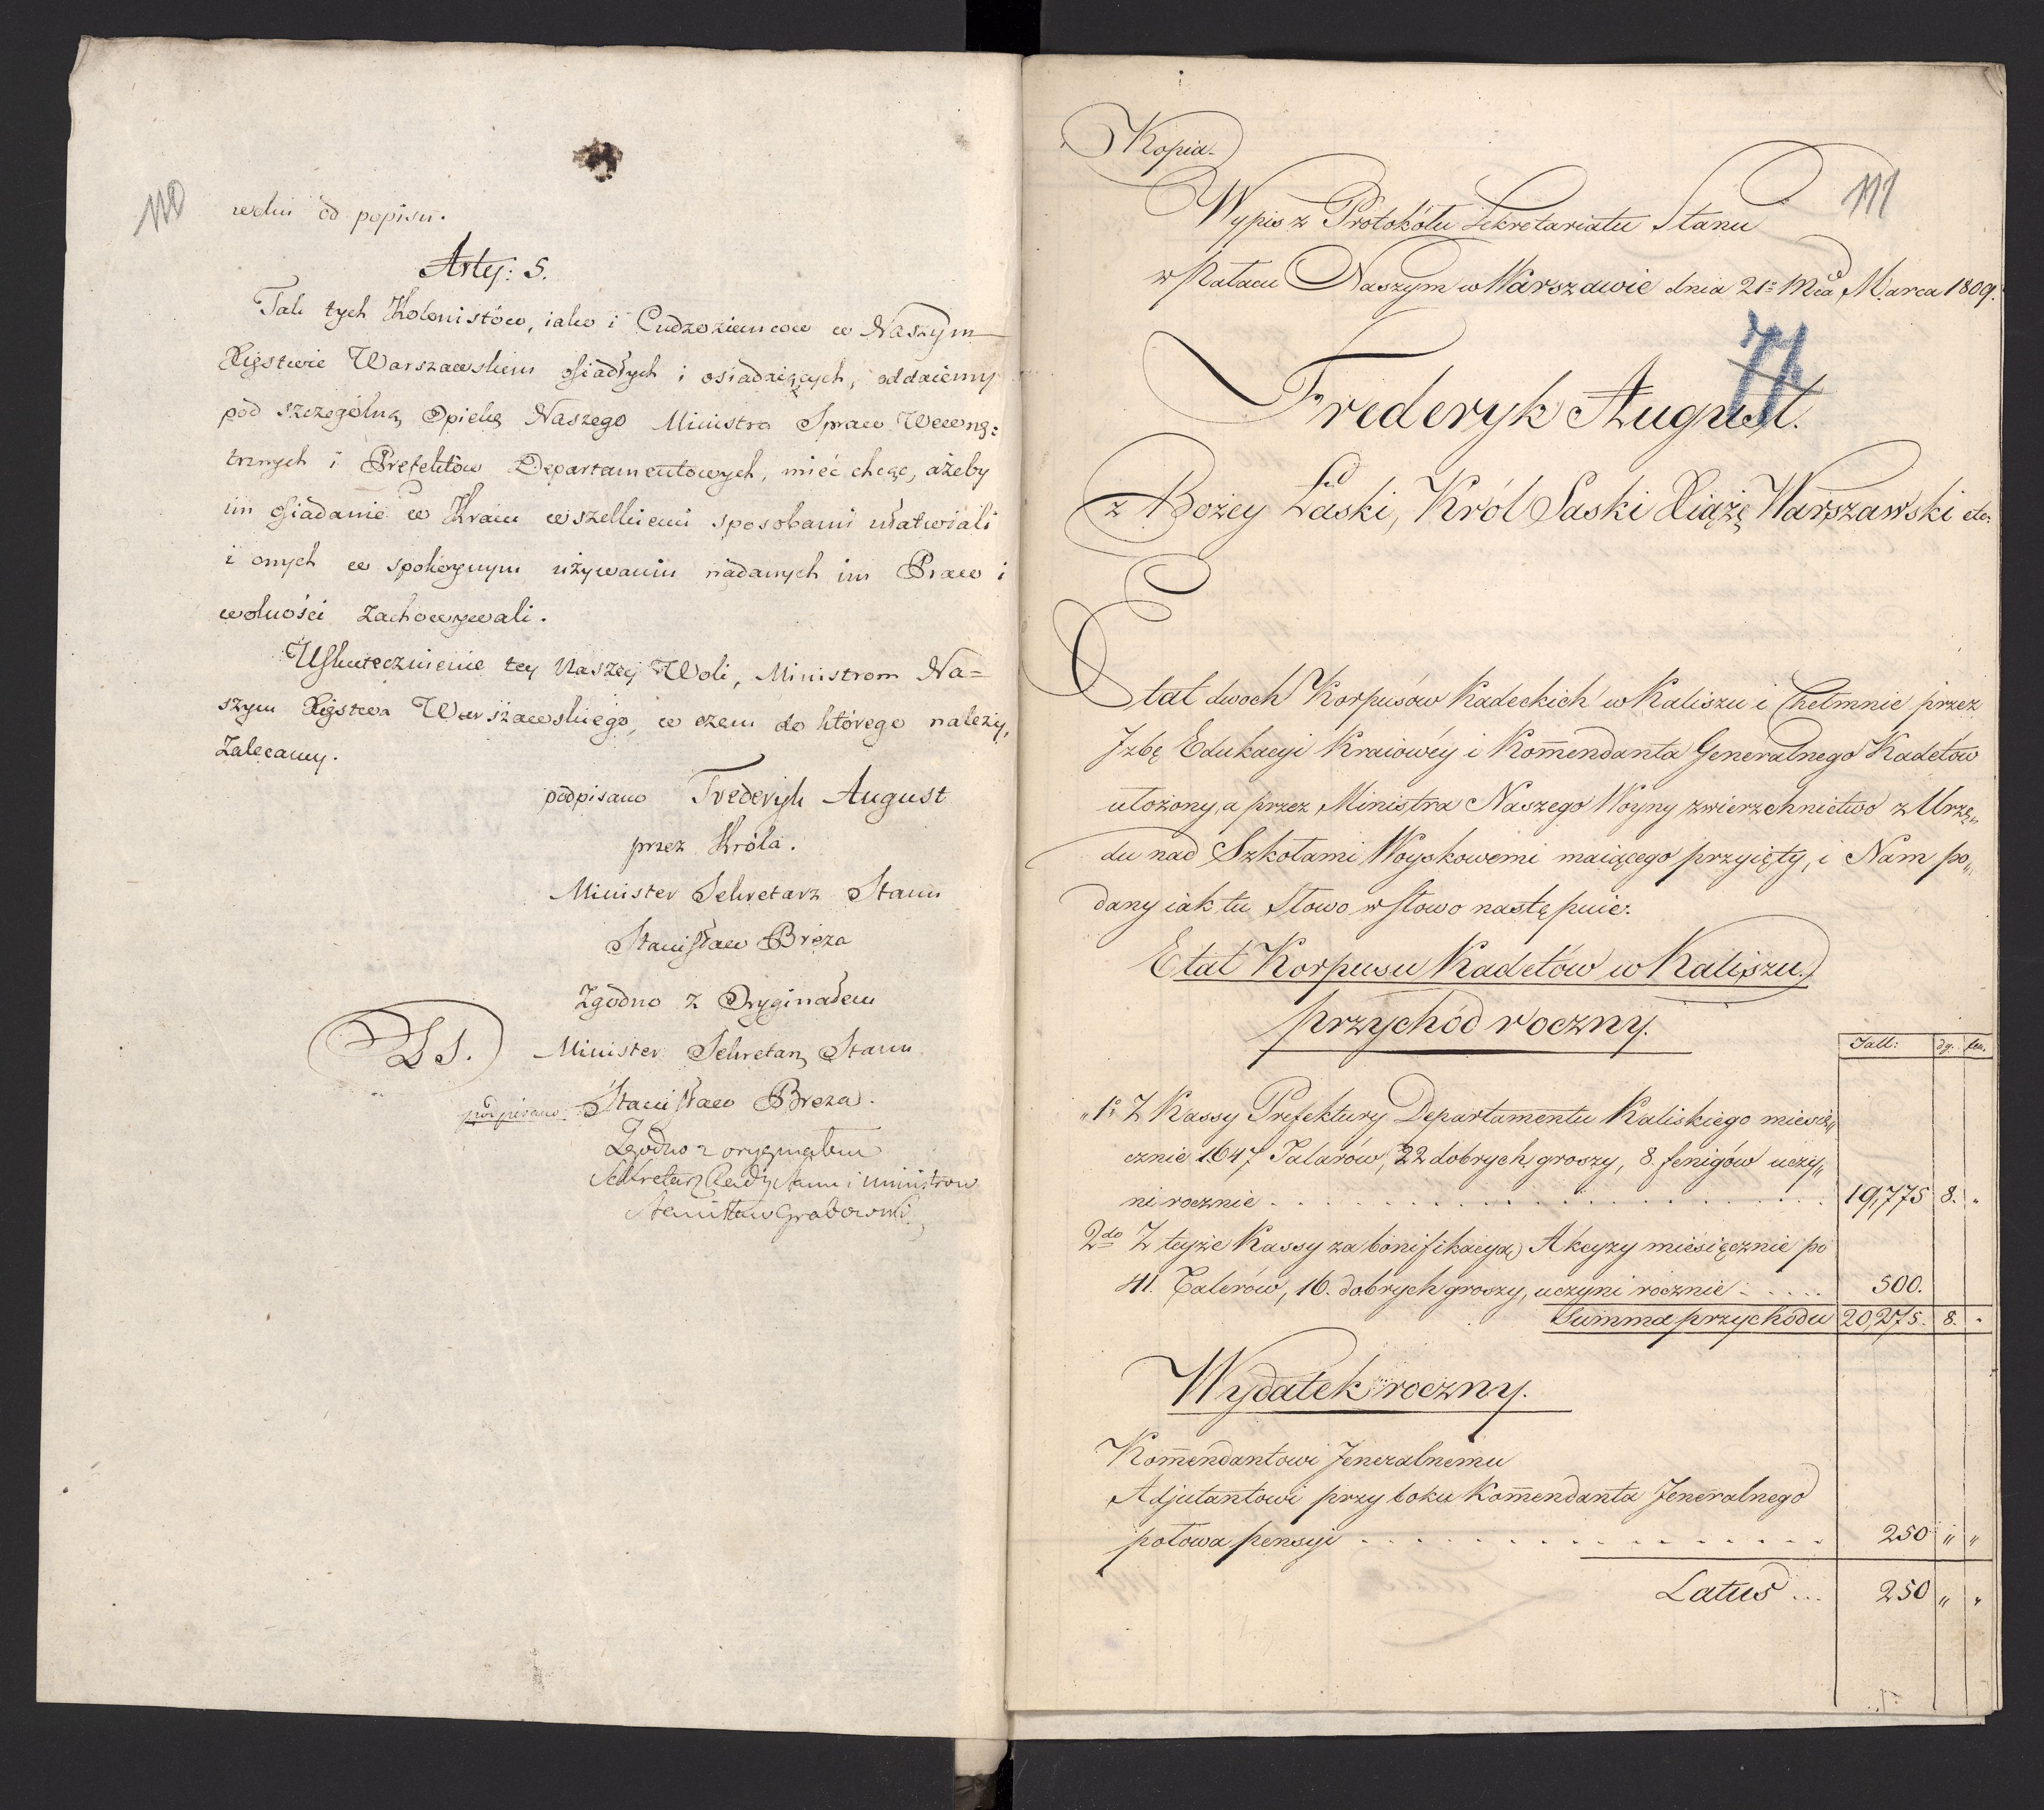 110
wolni od popisu.
Arty: 5.
Tak tych Kolonistów, iako i Cudzoziemcow w Naszym
Xięstwie Warszawskiem osiadłych i osiadaiących, oddaiemy
pod szczególną Opiekę Naszego Ministra Spraw Wewnę=
trznych i Prefektów Departamentowych, mieć chcąc, ażeby
im osiadanie w Kraiu wszelkiemi sposobami ułatwiali
i onych w spokoynym używaniu nadanych im Praw i
wolności zachowywali.
Uskutecznienie tey Naszey Woli, Ministrom Na=
szym Xięstwa Warszawskiego, w czem do którego należy,
zalecamy.
podpisano Frederyk August
przez Króla.
Minister Sekretarz Stanu
Stanisław Breza
Zgodno z Oryginałem
LS. Minister Sekretarz Stanu
podpisano: Stanisław Breza.
Zgodno z oryginałem
Sekretarz Rady Stanu i Ministrow
Stanisław Grabowski
Kopia.
111
Wypis z Protokółu Sekretariatu Stanu
w Pałacu Naszym w Warszawie dnia 21º Mca Marca 1809.
77
Frederyk August.
z Bożey Łaski, Król Saski Xiążę Warszawski etc:
Etat dwoch Korpusów Kadeckich w Kaliszu i Chełmnie przez
Jzbę Edukacyi Kraiowéy i Kom̄endanta Generalnego Kadetów
ułożony, a przez Ministra Naszego Woyny zwierzchnictwo z Urzę„
du nad Szkołami Woyskowemi maiącego przyięty, i Nam po„
dany iak tu Słowo w Słowo następuie.
Etat Korpusu Kadetów w Kaliszu.
przychód roczny.
Tall: dg. fen.
1º Z Kassy Prefektury Departamentu Kaliskiego miesię„
cznie 1647 Talarów, 22 dobrych groszy, 8. fenigów uczy„
ni rocznie . . . . . . 19,775 8. "
2do Z teyże Kassy za bonifikacyą Akcyzy miesięcznie po
41. Talerów, 16. dobrych groszy, uczyni rocznie . . . . . 500.
Summa przychodu 20,275. 8. "
Wydatek roczny.
Kom̄endantowi Jeneralnemu
Adjutantowi przy boku Kom̄endanta Jeneralnego
połowa pensyi . . . . . . 250 " "
Latus ... 250 " "